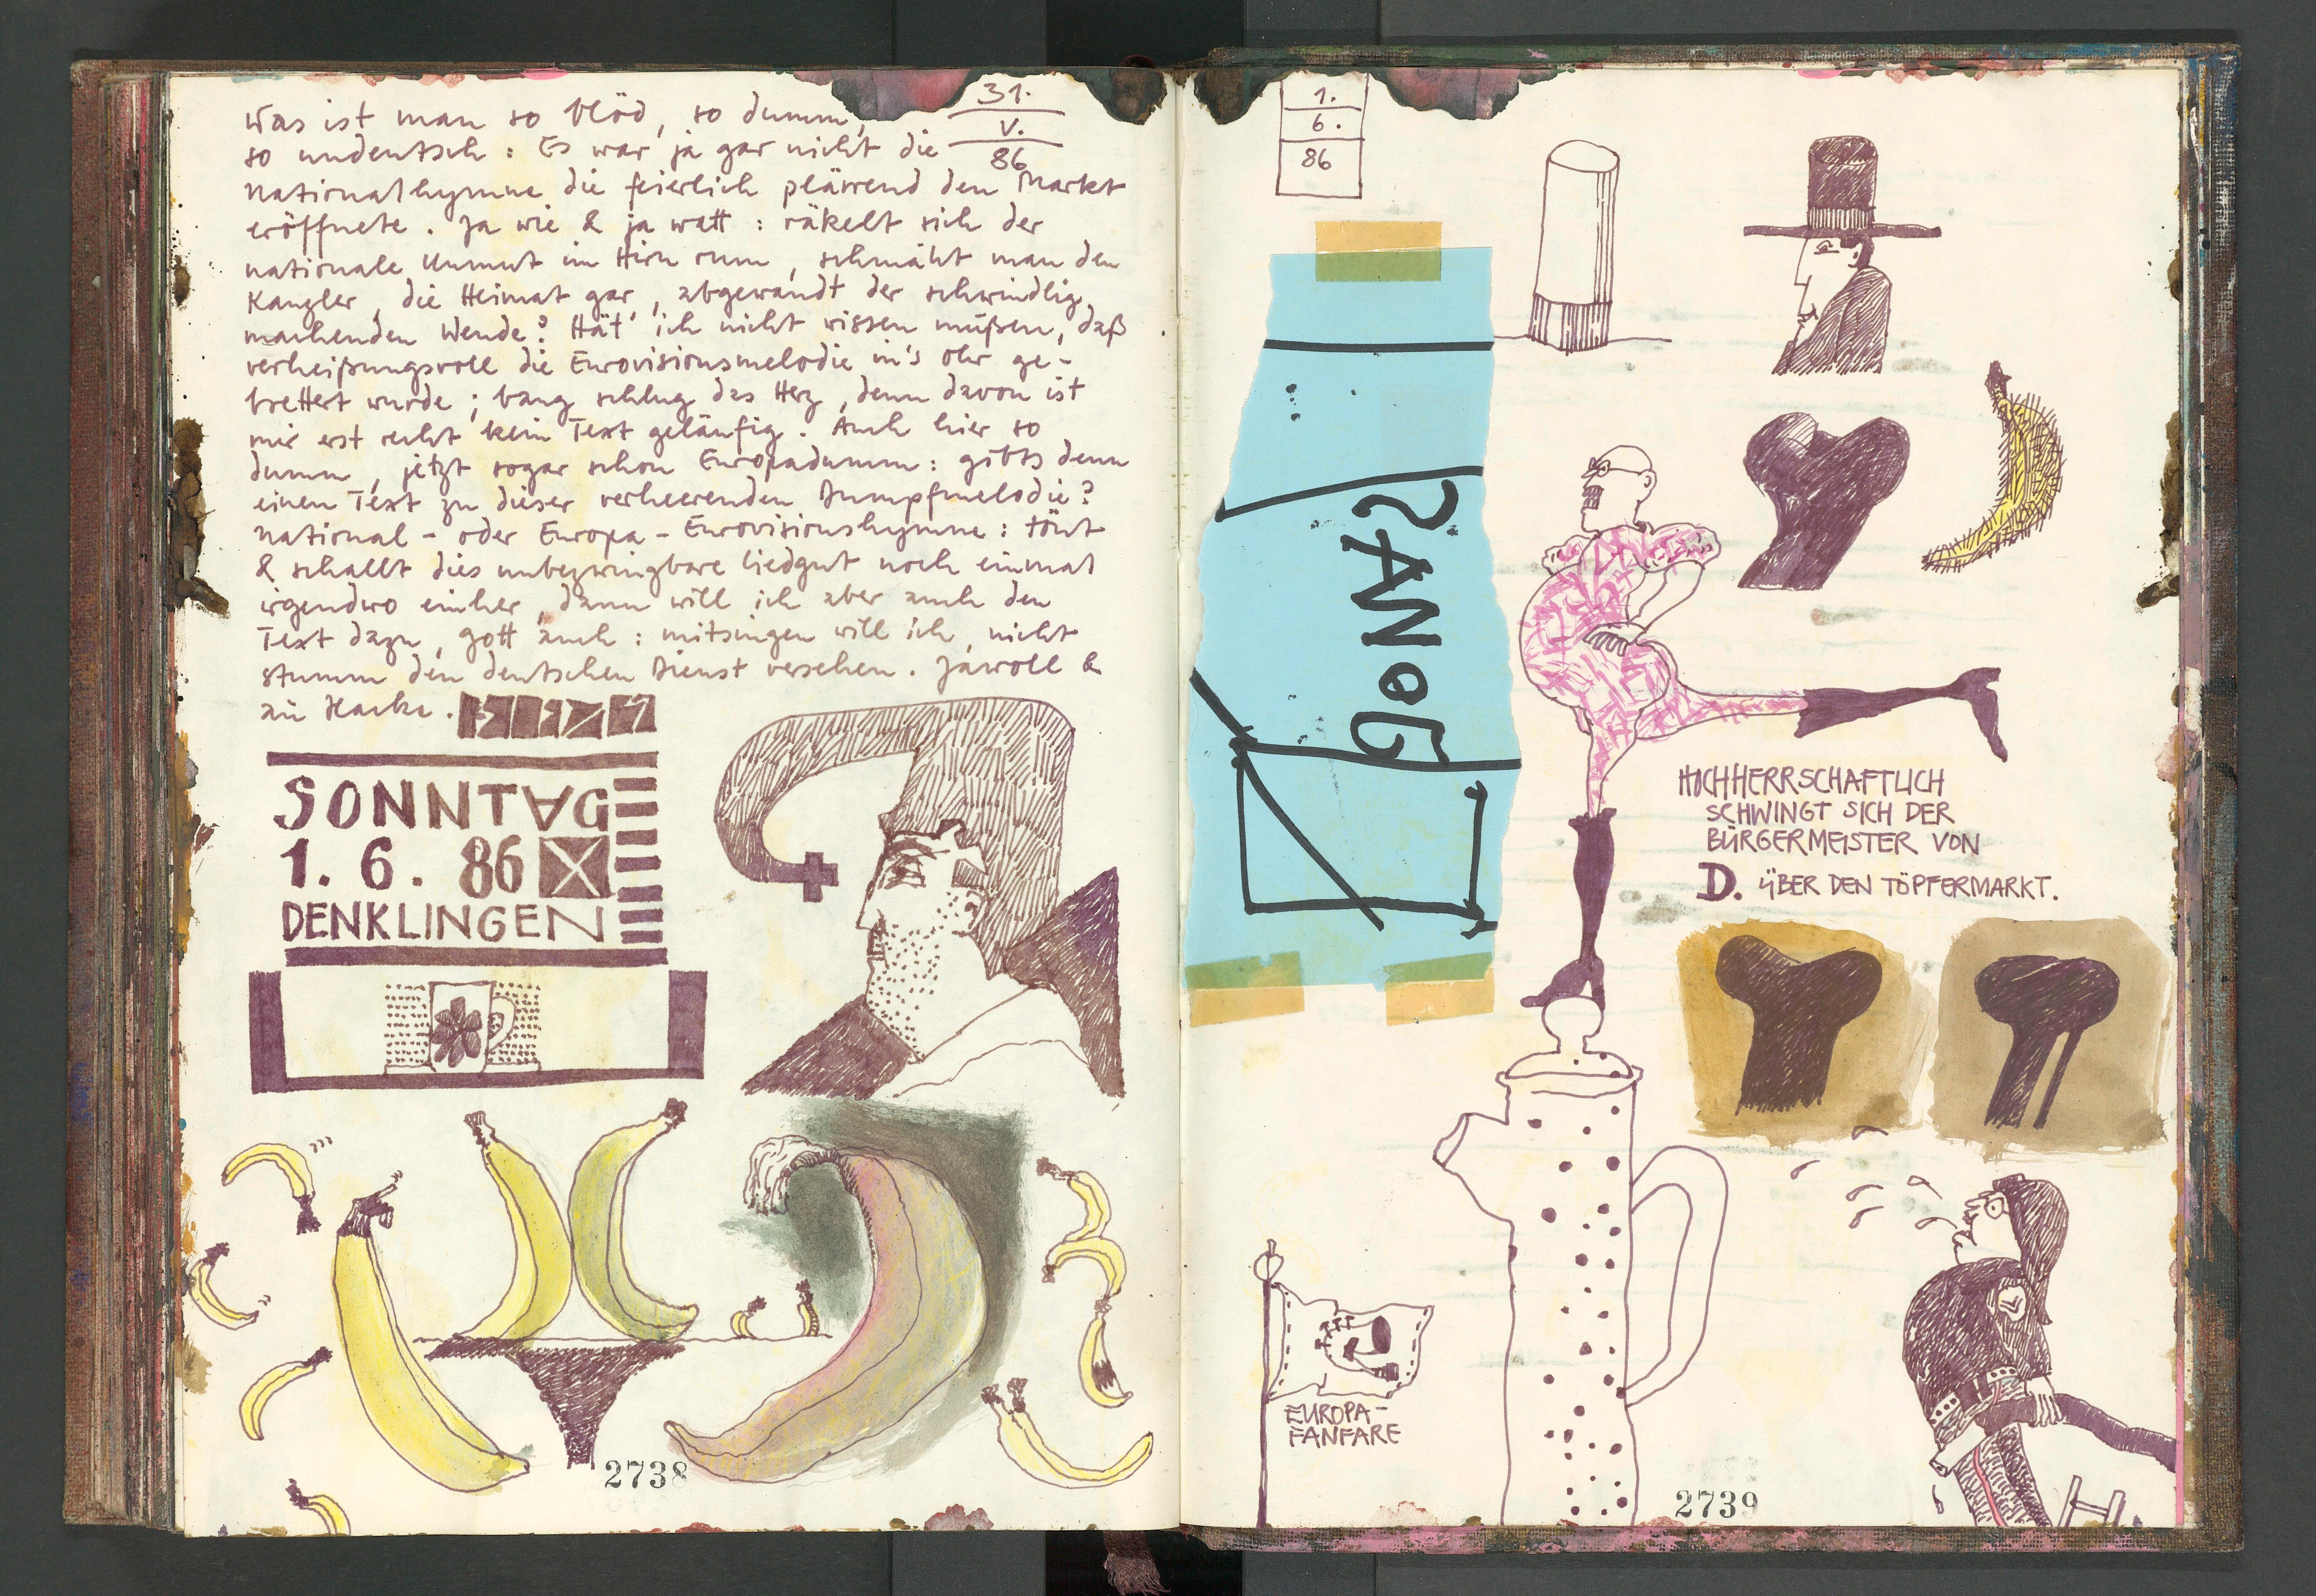 31.
V.
86
Was ist man so blöd, so dumm,
so undeutsch : Es war ja gar nicht die
Nationalhymne die feierlich plärrend den Markt
eröffnete. Ja wie & ja watt : räkelt sich der
nationale Unmut im Hirn rum, schmäht man den
Kanzler, die Heimat gar, abgewandt der schwindlig
machenden Wende? Hät' ich nicht wissen müßen, daß
verheißungsvoll die Eurovisionsmelodie in's Ohr ge-
brettert wurde ; bang schlug das Herz, denn davon ist
mir erst recht kein Text geläufig. Auch hier so
dumm, jetzt sogar schon Europadumm : gibts denn
einen Text zu dieser verheerenden Dumpfmelodie?
National - oder Europa - Eurovisionshymne : tönt
& schallt dies unbezwingbare Liedgut noch einmal
irgendwo einher, dann will ich aber auch den
Text dazu, Gott auch : mitsingen will ich, nicht
stumm den deutschen Dienst versehen. Jawoll &
zu Hacke.
SONNTAG
1. 6. 86
DENKLINGEN
2738
1.
6.
86
HOCHHERRSCHAFTLICH
SCHWINGT SICH DER
BÜRGERMEISTER VON
D. ÜBER DEN TÖPFERMARKT.
EUROPA-
FANFARE
2739